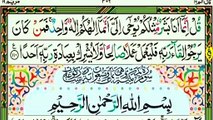 قُلْ اِنَّمَاۤ اَنَا بَشَرٌ مِّثْلُكُمْ يُوْحٰۤى اِلَىَّ اَنَّمَاۤ اِلٰهُكُمْ اِلٰهٌ وَّاحِدٌ فَمَنْ كَانَ
يَرْجُوْا لِقَآءَ رَبِّهٖ فَلْيَعْمَلْ عَمَلًا صَالِحًا وَّلَا يُشْرِكْ بِعِبَادَةِ رَبِّهٖۤ اَحَدًا
بِسْمِ اللّٰهِ الرَّحْمٰنِ الرَّحِيْمِ